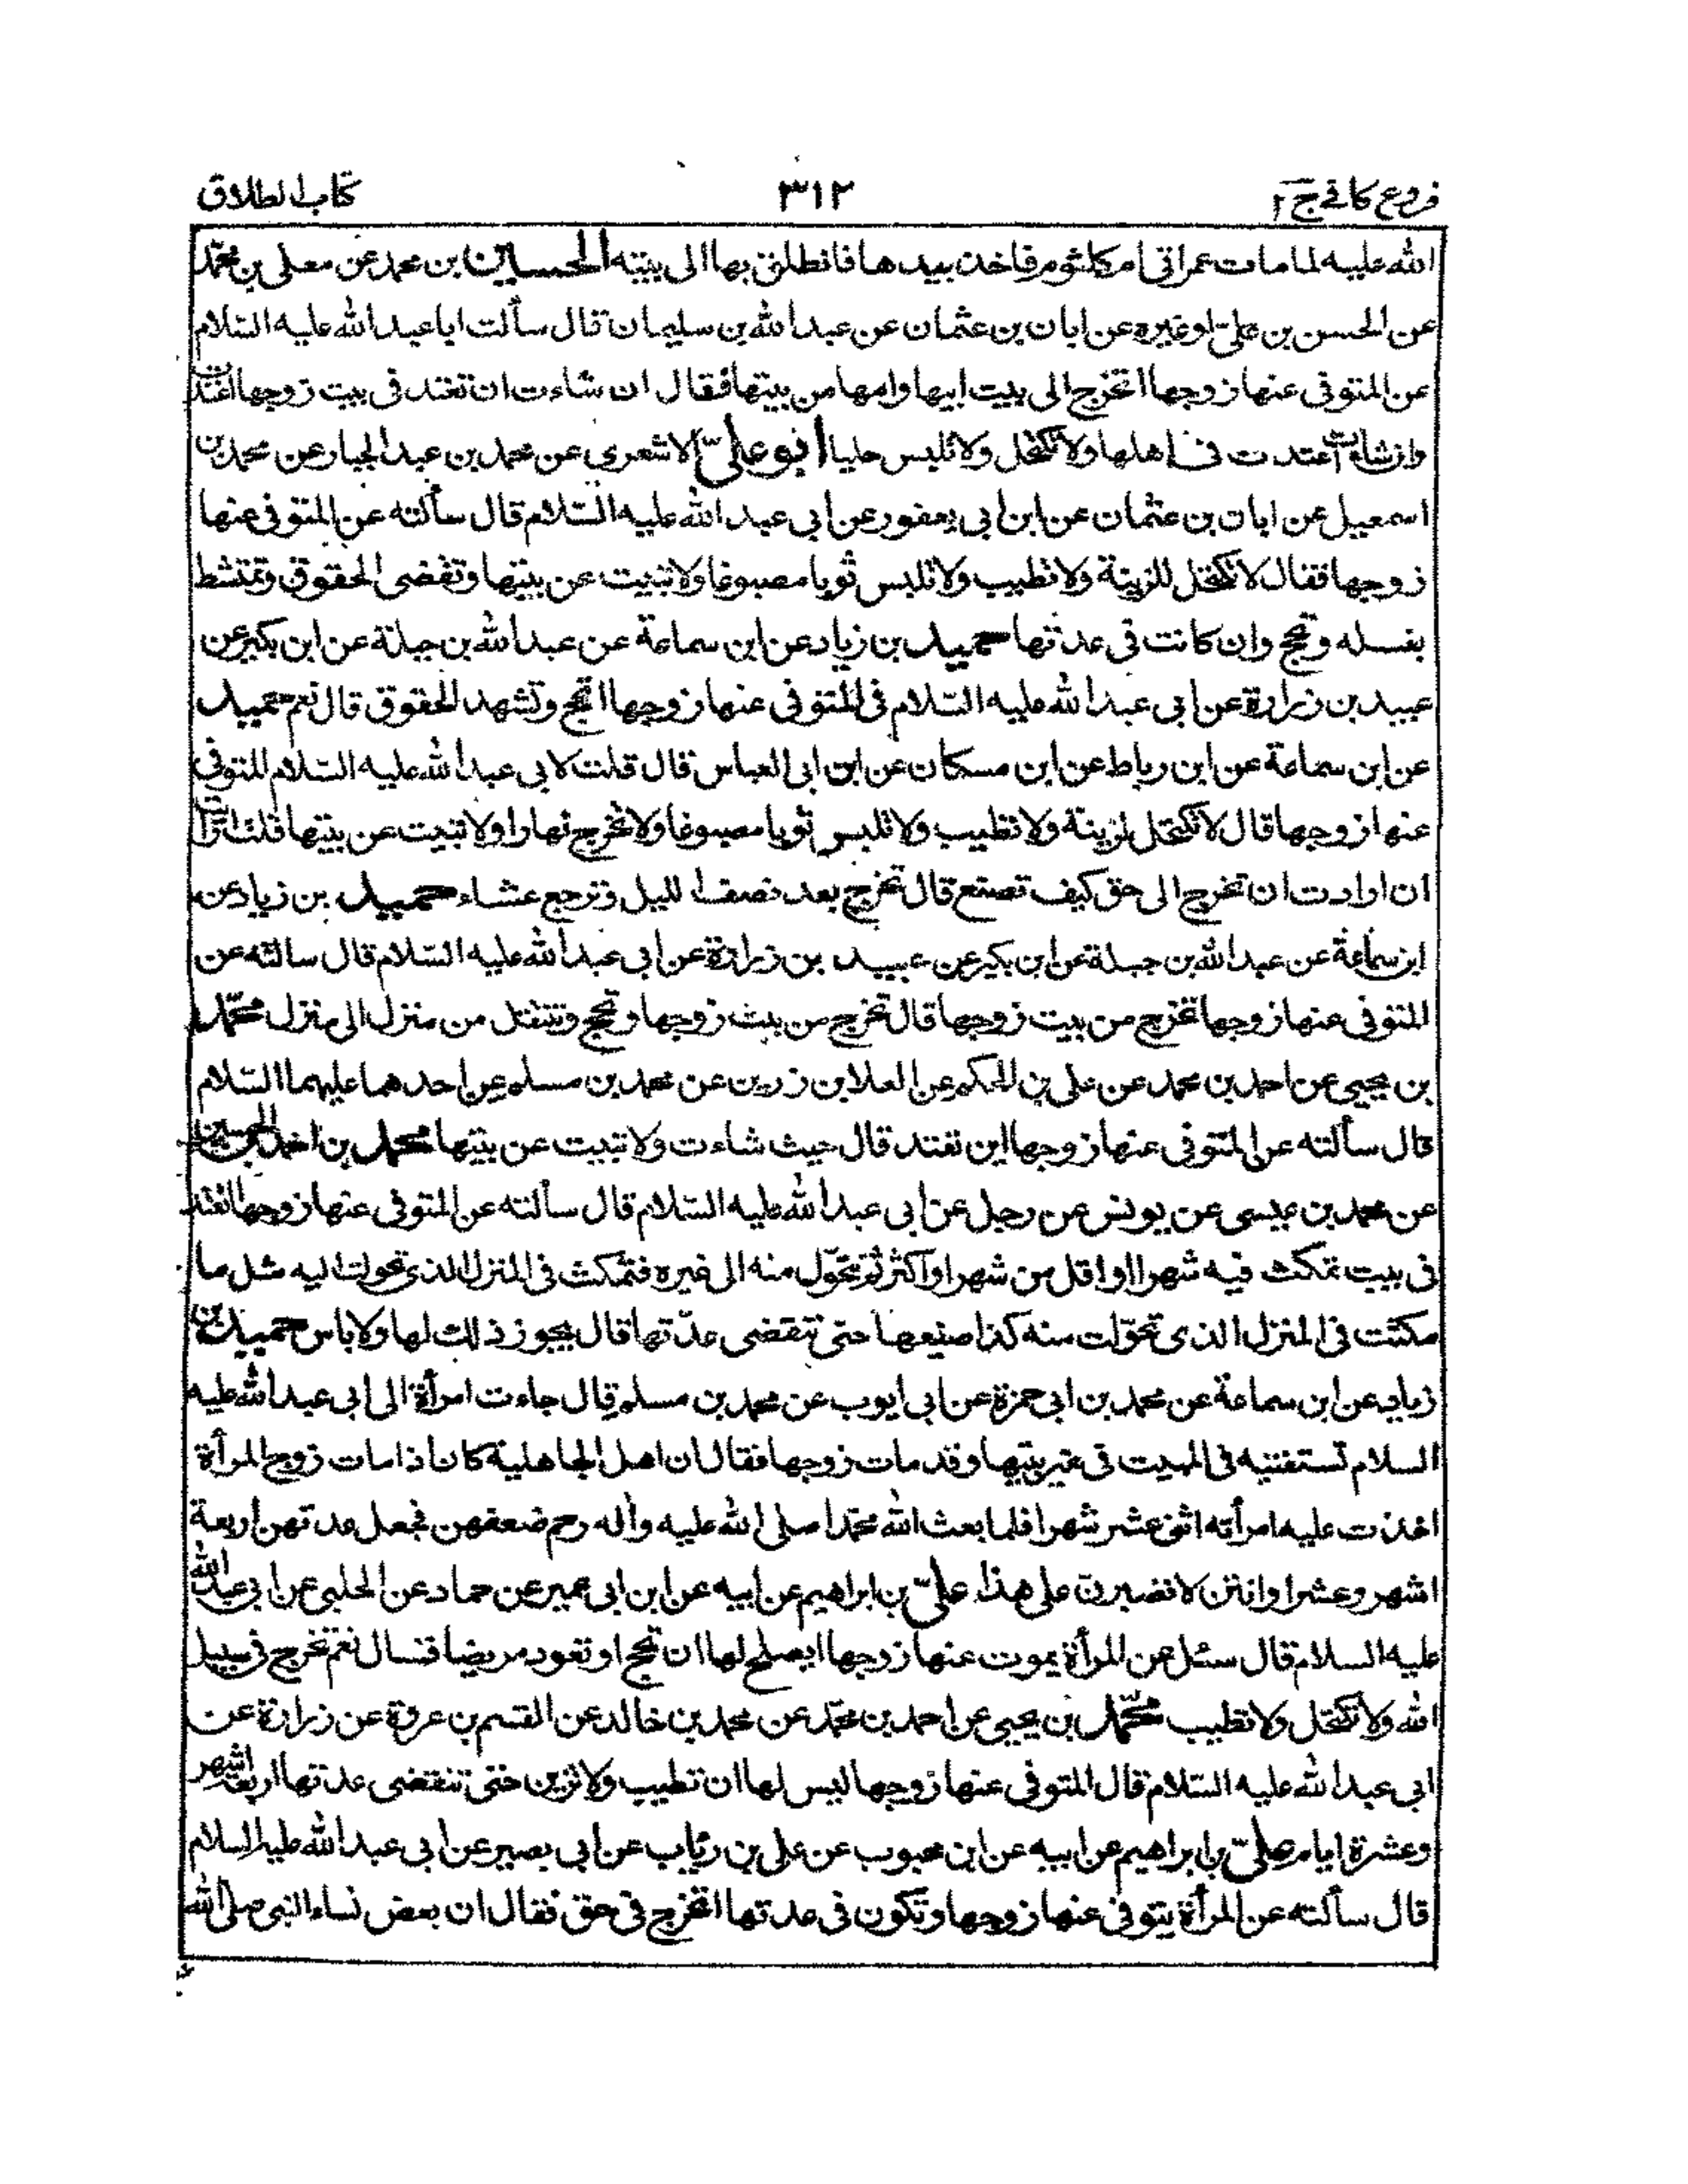 فروع كافي ج ٢
٣١٢
كتاب الطلاق
الله عليه لما مات عمر اتى ام كلثوم فاخذ بيدها فانطلق بها الى بيته الحسين بن محمد عن معلى بن محمد
عن الحسن بن علي او غيره عن ابان بن عثمان عن عبد الله بن سليمان قال سألت ابا عبد الله عليه السلام
عن المتوفى عنها زوجها اتخرج الى بيت ابيها وامها من بيتها فقال ان شاءت ان تعتد في بيت زوجها اعتدت
وان شاءت اعتدت في اهلها ولا تكتحل ولا تلبس حليا ابو علي الاشعري عن محمد بن عبد الجبار عن محمد بن
اسمعيل عن ابان بن عثمان عن ابن ابي يعفور عن ابي عبد الله عليه السلام قال سألته عن المتوفى عنها
زوجها فقال لا تكتحل للزينة ولا تطيب ولا تلبس ثوبا مصبوغا ولا تبيت عن بيتها وتقضى الحقوق وتمتشط
بغسله وتحج وان كانت في عدتها حميد بن زياد عن ابن سماعة عن عبد الله بن جبلة عن ابن بكير عن
عبيد بن زرارة عن ابي عبد الله عليه السلام في المتوفى عنها زوجها اتحج وتشهد الحقوق قال نعم حميد
عن ابن سماعة عن ابن رباط عن ابن مسكان عن ابن ابى العباس قال قلت لابي عبد الله عليه السلام المتوفى
عنها زوجها قال لا تكتحل لزينة ولا تطيب ولا تلبس ثوبا مصبوغا ولا تخرج نهارا ولا تبيت عن بيتها قلت ارأيت
ان ارادت ان تخرج الى حق كيف تصنع قال تخرج بعد نصف الليل وترجع عشاء حميد بن زياد عن
ابن سماعة عن عبد الله بن جبلة عن ابن بكير عن عبيد بن زرارة عن ابي عبد الله عليه السلام قال سالته عن
المتوفى عنها زوجها تخرج من بيت زوجها قال تخرج من بيت زوجها وتحج وتنتقل من منزل الى منزل محمد
بن يحيى عن احمد بن محمد عن علي بن الحكم عن العلا بن زرين عن محمد بن مسلم عن احدهما عليهما السلام
قال سألته عن المتوفى عنها زوجها اين تعتد قال حيث شاءت ولا تبيت عن بيتها محمد بن احمد الحسين
عن محمد بن عيسى عن يونس عن رجل عن ابي عبد الله عليه السلام قال سألته عن المتوفى عنها زوجها اتعتد
في بيت تمكث فيه شهرا او اقل من شهر او اكثر ثم تحول منه الى غيره فتمكث في المنزل الذي تحولت اليه مثل ما
مكثت في المنزل الذي تحولت منه كذا صنيعها حتى تنقضى عدتها قال يجوز ذلك لها ولا باس حميد بن
زياد عن ابن سماعة عن محمد بن ابي حمزة عن ابي ايوب عن محمد بن مسلم قال جاءت امرأة الى ابي عبد الله عليه
السلام تستفتيه في المبيت في غير بيتها وقد مات زوجها فقال ان اهل الجاهلية كان اذا مات زوج المرأة
احدت عليه امرأته اثنى عشر شهرا فلما بعث الله محمدا صلى الله عليه وآله رحم ضعفهن فجعل عدتهن اربعة
اشهر وعشرا وانتن لا تصبرن على هذا علي بن ابراهيم عن ابيه عن ابن ابى عمير عن حماد عن الحلبي عن ابي عبد الله
عليه السلام قال سئل عن المرأة يموت عنها زوجها ايصلح لها ان تحج او تعود مريضا قال نعم تخرج في سبيل
الله ولا تكتحل ولا تطيب محمد بن يحيى عن احمد بن محمد عن محمد بن خالد عن القسم بن عروة عن زرارة عن
ابي عبد الله عليه السلام قال المتوفى عنها زوجها ليس لها ان تطيب ولا تزين حتى تنقضى عدتها اربعة اشهر
وعشرة ايام علي بن ابراهيم عن ابيه عن ابن محبوب عن علي بن رئاب عن ابي بصير عن ابي عبد الله عليه السلام
قال سألته عن المرأة يتوفى عنها زوجها وتكون في عدتها اتخرج في حق فقال ان بعض نساء النبي صلى الله